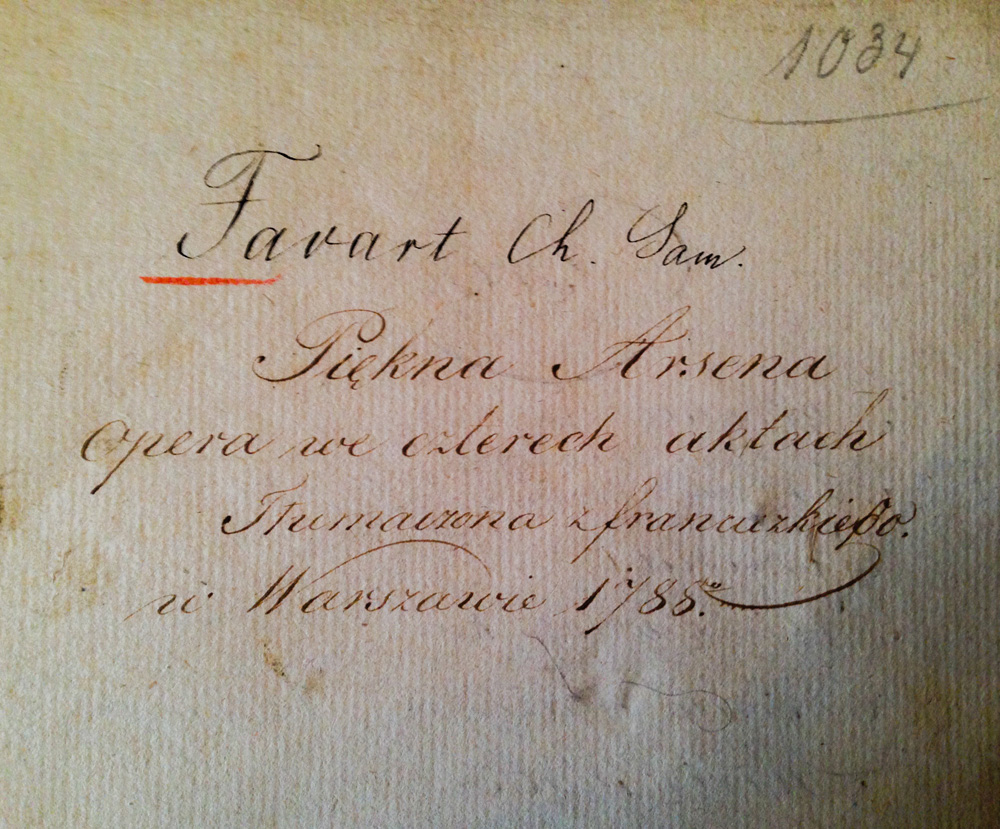 1034
Favart Ch. Sam.
Piękna Arsena
Opera we czterech aktach
Tłumaczona z francuzkiego.
w Warszawie 1788.